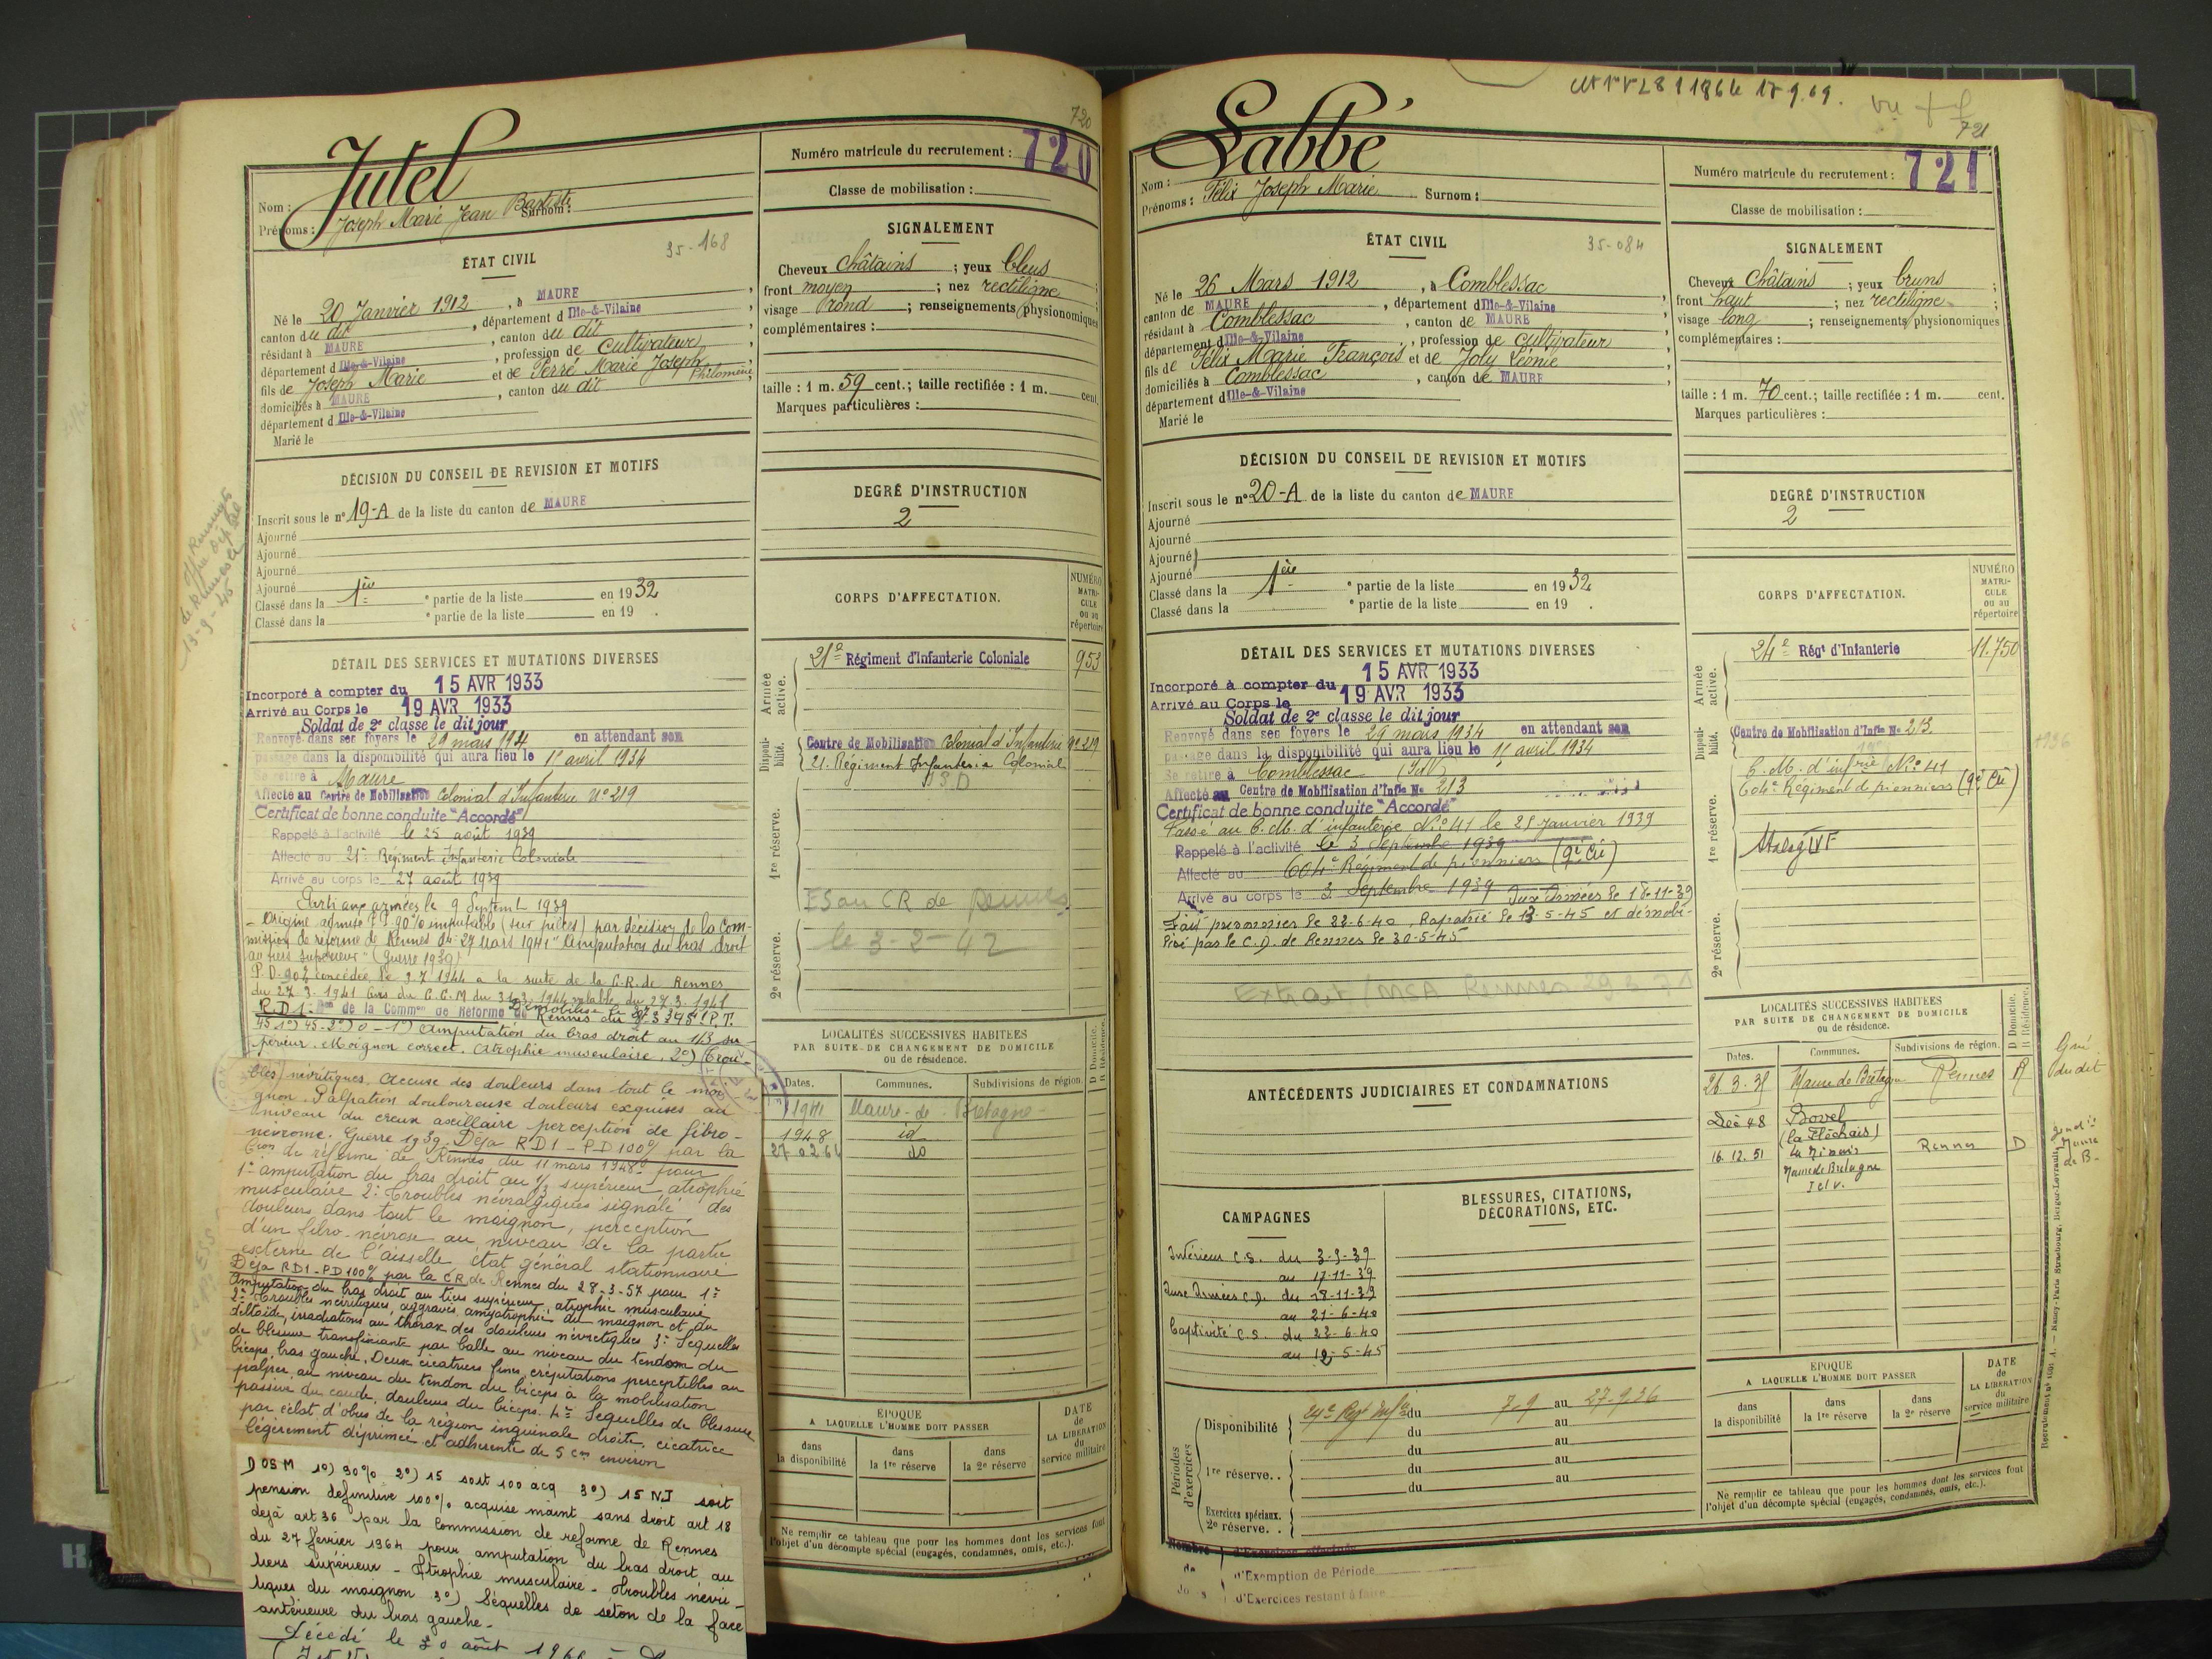 720
Jutel
Numéro matricule du recrutement : 720
Nom :
Prénoms : Joseph Marie Jean Baptiste Surnom :
Classe de mobilisation :
35-168
ÉTAT CIVIL
Né le 20 Janvier 1912, à MAURE
canton du dit, département d Ille-&-Vilaine
résidant à MAURE, canton du dit
département d Ille-&-Vilaine, profession de Cultivateur
fils de Joseph Marie et de Perré Marie Joseph Philomène
domiciliés à MAURE, canton du dit
département d Ille-&-Vilaine
Marié le
SIGNALEMENT
Cheveux châtains ; yeux bleus
front moyen ; nez rectiligne
visage rond ; renseignements physionomiques
complémentaires :
taille : 1 m. 59 cent.; taille rectifiée : 1 m. cent.
Marques particulières :
DÉCISION DU CONSEIL DE REVISION ET MOTIFS
Inscrit sous le n° 19-A de la liste du canton de MAURE
Ajourné
Ajourné
Ajourné
Ajourné
Classé dans la 1ère partie de la liste en 1932
Classé dans la e partie de la liste en 19
DEGRÉ D'INSTRUCTION
2
CORPS D'AFFECTATION.
NUMÉRO MATRICULE ou au répertoire
Armée active.
21e Régiment d'Infanterie Coloniale 953
Disponibilité.
Centre de Mobilisation Colonial d'Infanterie n°219
21. Régiment Infanterie Colonial
1re réserve.
FS au CR de Rennes
le 3-2-42
2e réserve.
DÉTAIL DES SERVICES ET MUTATIONS DIVERSES
Incorporé à compter du 15 AVR 1933
Arrivé au Corps le 19 AVR 1933
Soldat de 2e classe le dit jour
Renvoyé dans ses foyers le 29 mars 1934 en attendant son
passage dans la disponibilité qui aura lieu le 1r avril 1934
Se retire à Maure
Affecté au Centre de Mobilisation Colonial d'Infanterie N°219
Certificat de bonne conduite "Accordé"
Rappelé à l'activité le 25 août 1939
Affecté au 21e Régiment Infanterie Coloniale
Arrivé au corps le 27 août 1939
Parti aux armées le 9 Septemb 1939
- Origine admise P.P. 90% imputable (sur pièces) par décision de la Com-
mission de réforme de Rennes du 27 Mars 1941 "Amputation du bras droit
au tiers supérieur" (Guerre 1939)
P.D. 90% concédée le 9 7 1944 à la suite de la C.R. de Rennes
du 27 3. 1941 Avis du C.C.M du 31.3.1944 valable du 27.3.1941
1°) Amputation du bras droit au 1/3 su-
périeur. Moignon correct. Atrophie musculaire. 2°) Trou-
bles névritiques. Accuse des douleurs dans tout le moi-
gnon. Palpation douloureuse douleurs exquises au
niveau du creux axillaire perception de fibro-
névrome. Guerre 1939. Déjà RD1 - PD 100% par la
Cion de réforme de Rennes du 11 mars 1948 pour
1° amputation du bras droit au 1/3 supérieur, atrophie
musculaire 2° Troubles névralgiques signale des
douleurs dans tout le moignon, perception
d'un fibro-névrose au niveau de la partie
externe de l'aisselle état général stationnaire
Déjà RD1 - PD 100% par la CR de Rennes du 28-3-57 pour 1°
Amputation du bras droit au tiers supérieur, atrophie musculaire
2° Troubles névritiques, aggravés, amyotrophie du moignon et du
deltoïde, irradiations au thorax des douleurs névritiques 3° Séquelles
de blessure transfixiante par balle au niveau du tendon du
biceps bras gauche. Deux cicatrices fines, crépitations perceptibles au
palper au niveau du tendon du biceps à la mobilisation
passive du coude, douleurs du biceps. 4° Séquelles de blessure
par éclat d'obus de la région inguinale droite, cicatrice
légèrement déprimée et adhérente de 5 cm environ
DOSM 1°) 90% 2°) 15 soit 100 acq 3°) 15 NI soit
pension définitive 100% acquise maint sans droit art 18
déjà art 36 par la Commission de réforme de Rennes
du 27 février 1964 pour amputation du bras droit au
tiers supérieur - Atrophie musculaire - Troubles névri-
tiques du moignon 3°) Séquelles de séton de la face
antérieure du bras gauche.
Décédé le 20 août
LOCALITÉS SUCCESSIVES HABITÉES
PAR SUITE DE CHANGEMENT DE DOMICILE
ou de résidence.
D Domicile. R Résidence.
Dates. Communes. Subdivisions de région.
1941 Maure-de-Bretagne
1948 id
do
ÉPOQUE
A LAQUELLE L'HOMME DOIT PASSER
dans la disponibilité
dans la 1re réserve
dans la 2e réserve
DATE de LA LIBÉRATION du service militaire
Ne remplir ce tableau que pour les hommes dont les services font
l'objet d'un décompte spécial (engagés, condamnés, omis, etc.).
721
Labbé
Numéro matricule du recrutement : 721
Nom :
Prénoms : Félix Joseph Marie Surnom :
Classe de mobilisation :
35-084
ÉTAT CIVIL
Né le 26 Mars 1912, à Comblessac
canton de MAURE, département d Ille-&-Vilaine
résidant à Comblessac, canton de MAURE
département d Ille-&-Vilaine, profession de cultivateur
fils de Félix Marie François et de Joly Léonie
domiciliés à Comblessac, canton de MAURE
département d Ille-&-Vilaine
Marié le
SIGNALEMENT
Cheveux châtains ; yeux bruns
front haut ; nez rectiligne
visage long ; renseignements physionomiques
complémentaires :
taille : 1 m. 70 cent.; taille rectifiée : 1 m. cent.
Marques particulières :
DÉCISION DU CONSEIL DE REVISION ET MOTIFS
Inscrit sous le n° 20-A de la liste du canton de MAURE
Ajourné
Ajourné
Ajourné
Ajourné
Classé dans la 1ère partie de la liste en 1932
Classé dans la e partie de la liste en 19
DEGRÉ D'INSTRUCTION
2
CORPS D'AFFECTATION.
NUMÉRO MATRICULE ou au répertoire
Armée active.
24e Régt d'Infanterie 11.750
Disponibilité.
Centre de Mobilisation d'Infie No 213
C. M. d'infrie N° 41
604e Régiment de pionniers (9e Cie)
1re réserve.
Stalag IV F
2e réserve.
DÉTAIL DES SERVICES ET MUTATIONS DIVERSES
Incorporé à compter du 15 AVR 1933
Arrivé au Corps le 19 AVR 1933
Soldat de 2e classe le dit jour
Renvoyé dans ses foyers le 29 mars 1934 en attendant son
passage dans la disponibilité qui aura lieu le 1r avril 1934
Se retire à Comblessac (IdV)
Affecté au Centre de Mobilisation d'Infie No 213
Certificat de bonne conduite "Accordé"
Passé au C. M. d'infanterie N° 41 le 25 Janvier 1939
Rappelé à l'activité le 3 Septembre 1939
Affecté au 604e Régiment de pionniers (9e Cie)
Arrivé au corps le 3 Septembre 1939 Aux Armées le 18-11-39
Fait prisonnier le 22-6-40, Rapatrié le 13-5-45 et démobi-
lisé par le C.D. de Rennes le 30-5-45
Extrait/MSA Rennes
ANTÉCÉDENTS JUDICIAIRES ET CONDAMNATIONS
CAMPAGNES
Intérieur C.S. du 3-9-39
au 17-11-39
Aux Armées C.D. du 18-11-39
au 21-6-40
Captivité C.S. du 22-6-40
au 12-5-45
BLESSURES, CITATIONS, DÉCORATIONS, ETC.
LOCALITÉS SUCCESSIVES HABITÉES
PAR SUITE DE CHANGEMENT DE DOMICILE
ou de résidence.
D Domicile. R Résidence.
Dates. Communes. Subdivisions de région.
26.3.35 Maure de Bretagne Rennes R
Déc 48 Bovel (la Fléchais)
16.12.51 Maure de Bretagne I et V. Rennes D
Périodes d'exercices
Disponibilité 24e Regt Infie du 7.9 au 27.9.36
du au
du au
1re réserve. . du au
du au
du
Exercices spéciaux.
2e réserve. .
ÉPOQUE
A LAQUELLE L'HOMME DOIT PASSER
dans la disponibilité
dans la 1re réserve
dans la 2e réserve
DATE de LA LIBÉRATION du service militaire
Ne remplir ce tableau que pour les hommes dont les services font
l'objet d'un décompte spécial (engagés, condamnés, omis, etc.).
Nombre de Jours
d'Exercices effectués
d'Exemption de Période
d'Exercices restant à faire